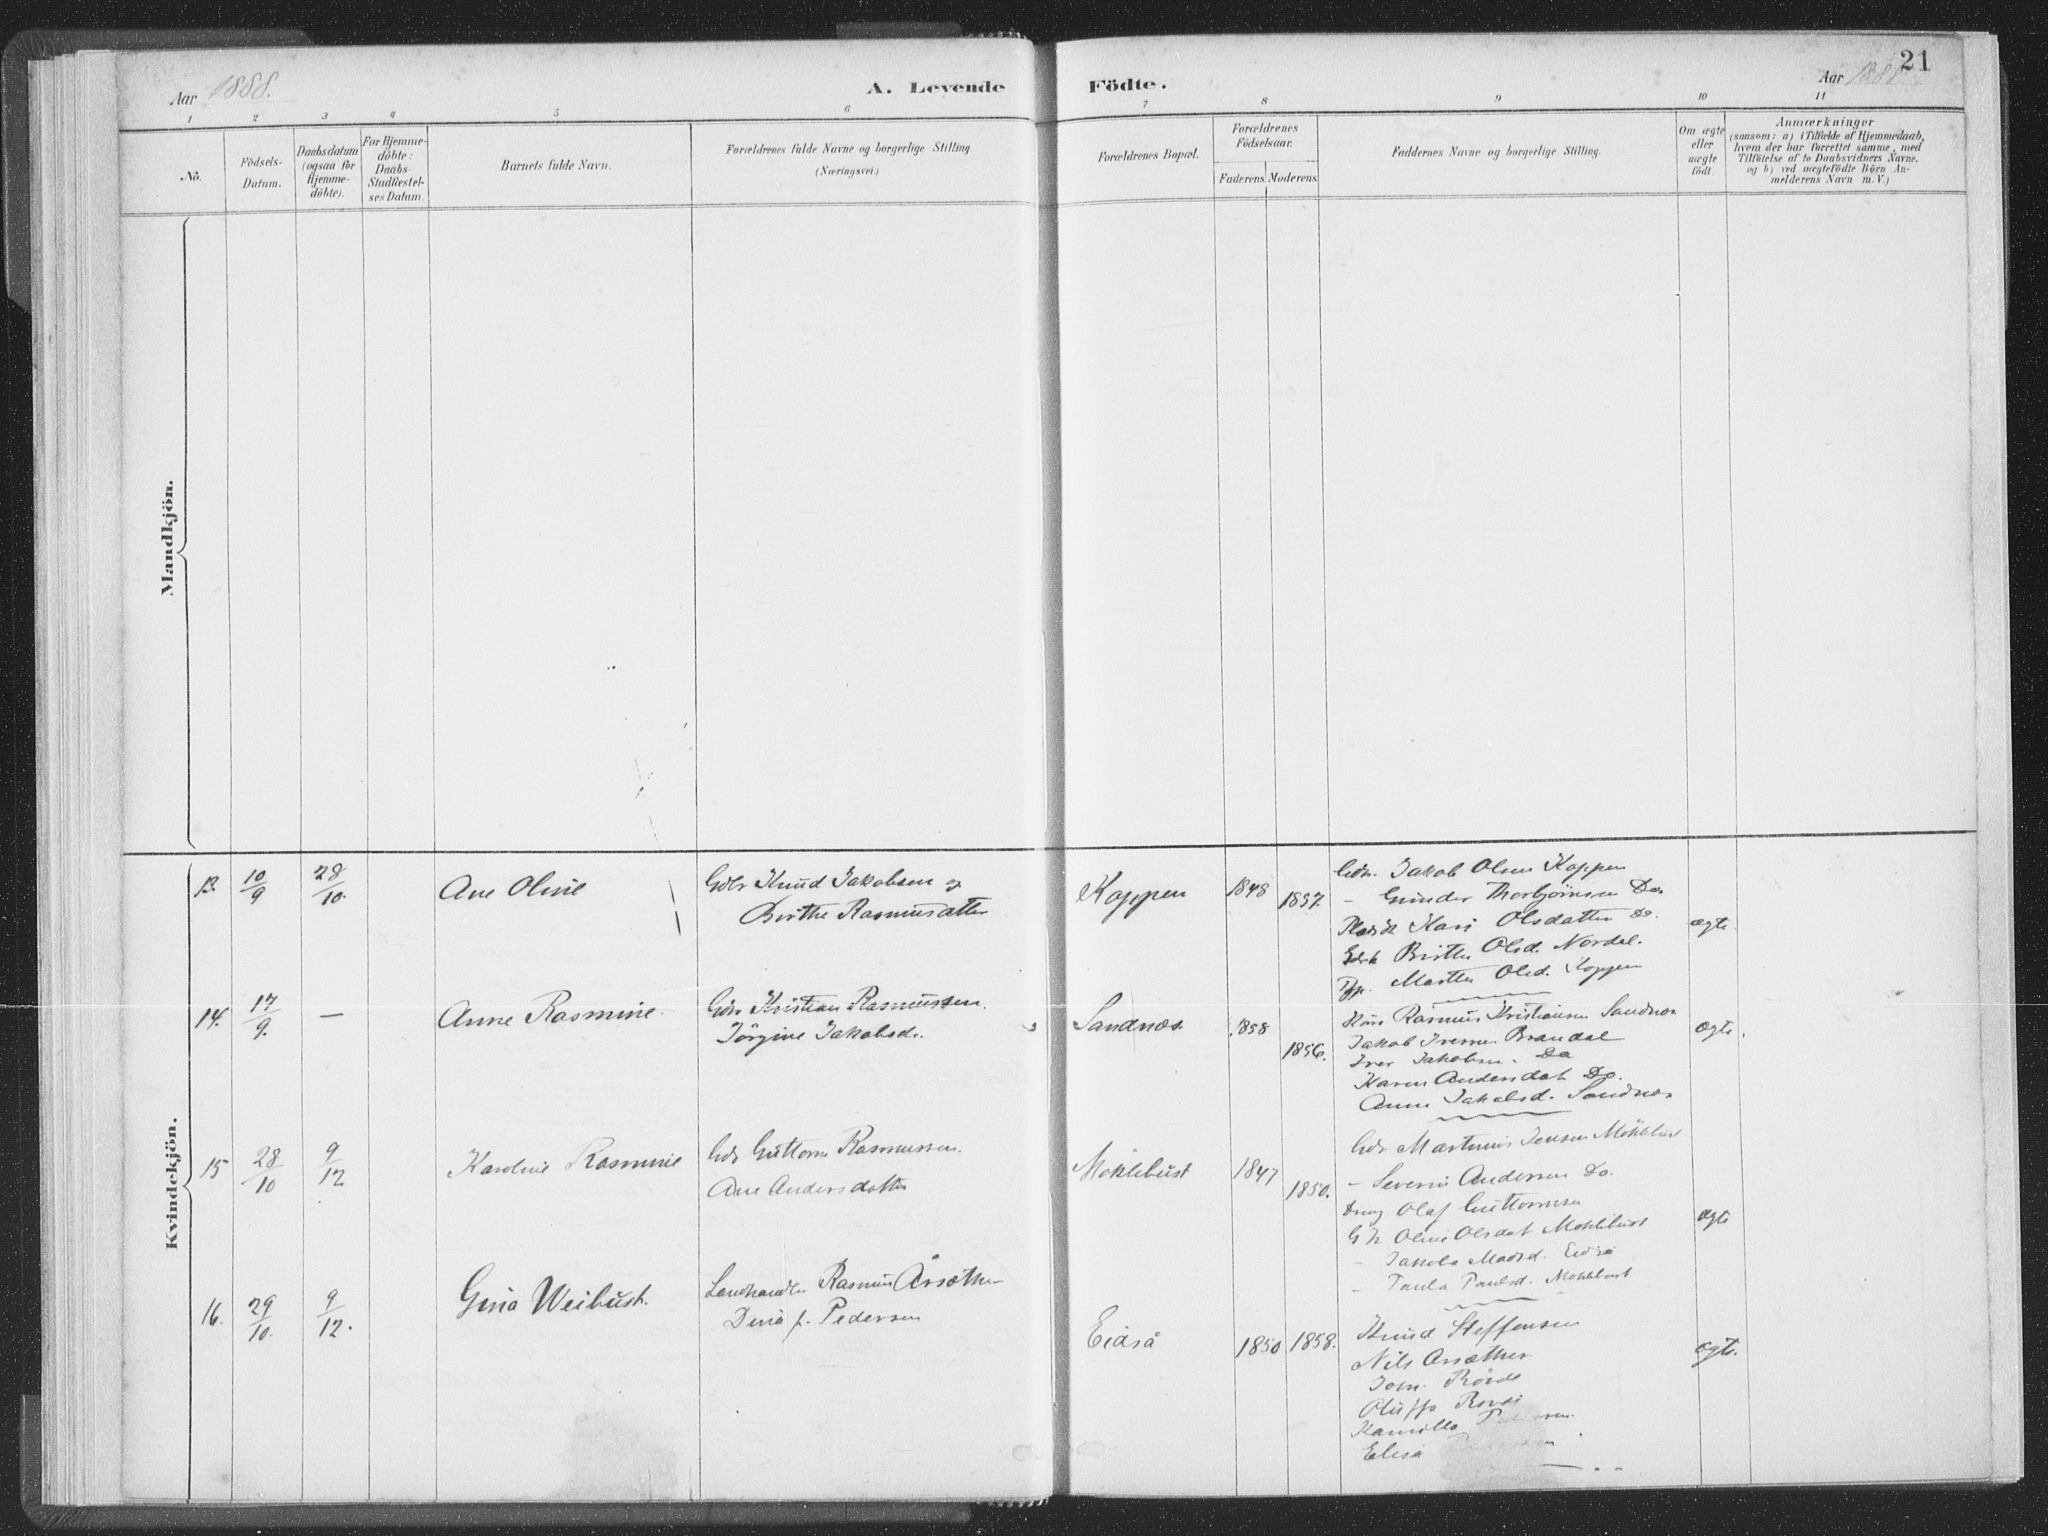 21
Aar 1888.
A. Levende Födte.
Aar 1888
1 2 3 4 5 6 7 8 9 10 11
No.
Födsels-Datum.
Daabsdatum (ogsaa for Hjemme-döbte).
For Hjemme-döbte: Daabs-Stadfestel-ses Datum.
Barnets fulde Navn.
Forældrenes fulde Navne og borgerlige Stilling.
(Næringsvei.)
Forældrenes Bopæl.
Forældrenes Födselsaar.
Faderens. Moderens.
Faddernes Navne og borgerlige Stilling.
Om ægte eller uægte födt.
Anmærkninger
(saasom: a) i Tilfælde af Hjemmedaab, hvem der har forrettet samme, med Tilföielse af to Daabsvidners Navne, og b) ved uægtefödte Börn An-melderens Navn m. V.)
Mandkjön.
Kvindekjön.
13. 10/9 28/10. Ane Oline
Gdbr Knud Jakobsen og
Birthe Rasmusdatter
Koppen 1848 1857.
Gdbr. Jakob Olsen Koppen
- Gunder Thorbjörnsen Do.
Kari Olsdatter Do.
Brithe Olsd. Nordal.
Pige. Marthe Olsd. Koppen
ægte.
14. 17/9. — Anne Rasmine.
Gdbr Kristian Rasmussen.
Jörgine Jakobsd.
Sandnæs 1858 1856.
Rasmus Kristiansen Sandnæs
Jakob Iversen Brandal
Iver Jakobsen. Do
Karen Andersdat Do.
Anne Jakobsd. Sandnæs
ægte.
15 28/10 9/12 Karoline Rasmine
Gdbr Guttorm Rasmussen.
Ane Andersdatter
Moklebust 1847 1850.
Gdbr Martinus Jensen Möklebust
- Severin Andersen Do.
Olaf Guttormsen
Oline Olsdat Moklebust
- Jakoba Madsd. Eidså
- Paula Paulsd. Moklebust
ægte
16. 29/10. 9/12. Gina Weibust.
Landhandler Rasmus Årsæther
Dina f. Pedersen
Eidså 1850 1858.
Knud Steffensen
Nils Arsæther
Rövde
Oluffa Rovde
Kamilla
Elisa
ægte.